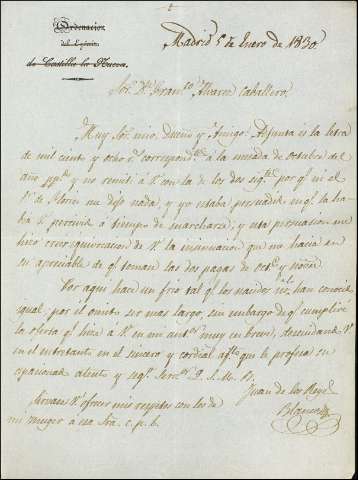 Ordenacion
del Egército
de Castilla la Nueva.
Madrid 5 de Enero de 1830.
Sor. Dn. Franco. Alvarez Caballero.
Muy Sor. mio, Dueño y Amigo: Adjunta es la letra
de mil ciento y ocho rs. correspondte. á la mesada de Octubre del
año ppdo. y no remití á V. con la de los dos sigtes. por qe. ni el
Sr. de me dijo nada, y yo estaba persuadido qe. la ha-
bia V. percivido á tiempo de marcharse, y esta persuasion me
hizo creer equivocacion de V. la insinuacion que me hacia en
su apreciable de qe. toman las dos pagas de Octe. y Nove.
Por aqui hace un frio tal qe. los nacidos no le han conocido
igual, por él omito ser mas largo, sin embargo de qe. cumpliré
la oferta qe. hice á V. en mi anteor. muy en breve,
en el sincero y cordial afto. que le profesa su
apasionado atento y sego. Servor. Q. S. M. B.
Juan de los Reyes
Sirvase V. ofrecer mis respetos con los de
mi muger a esa Sra. c. p. b.